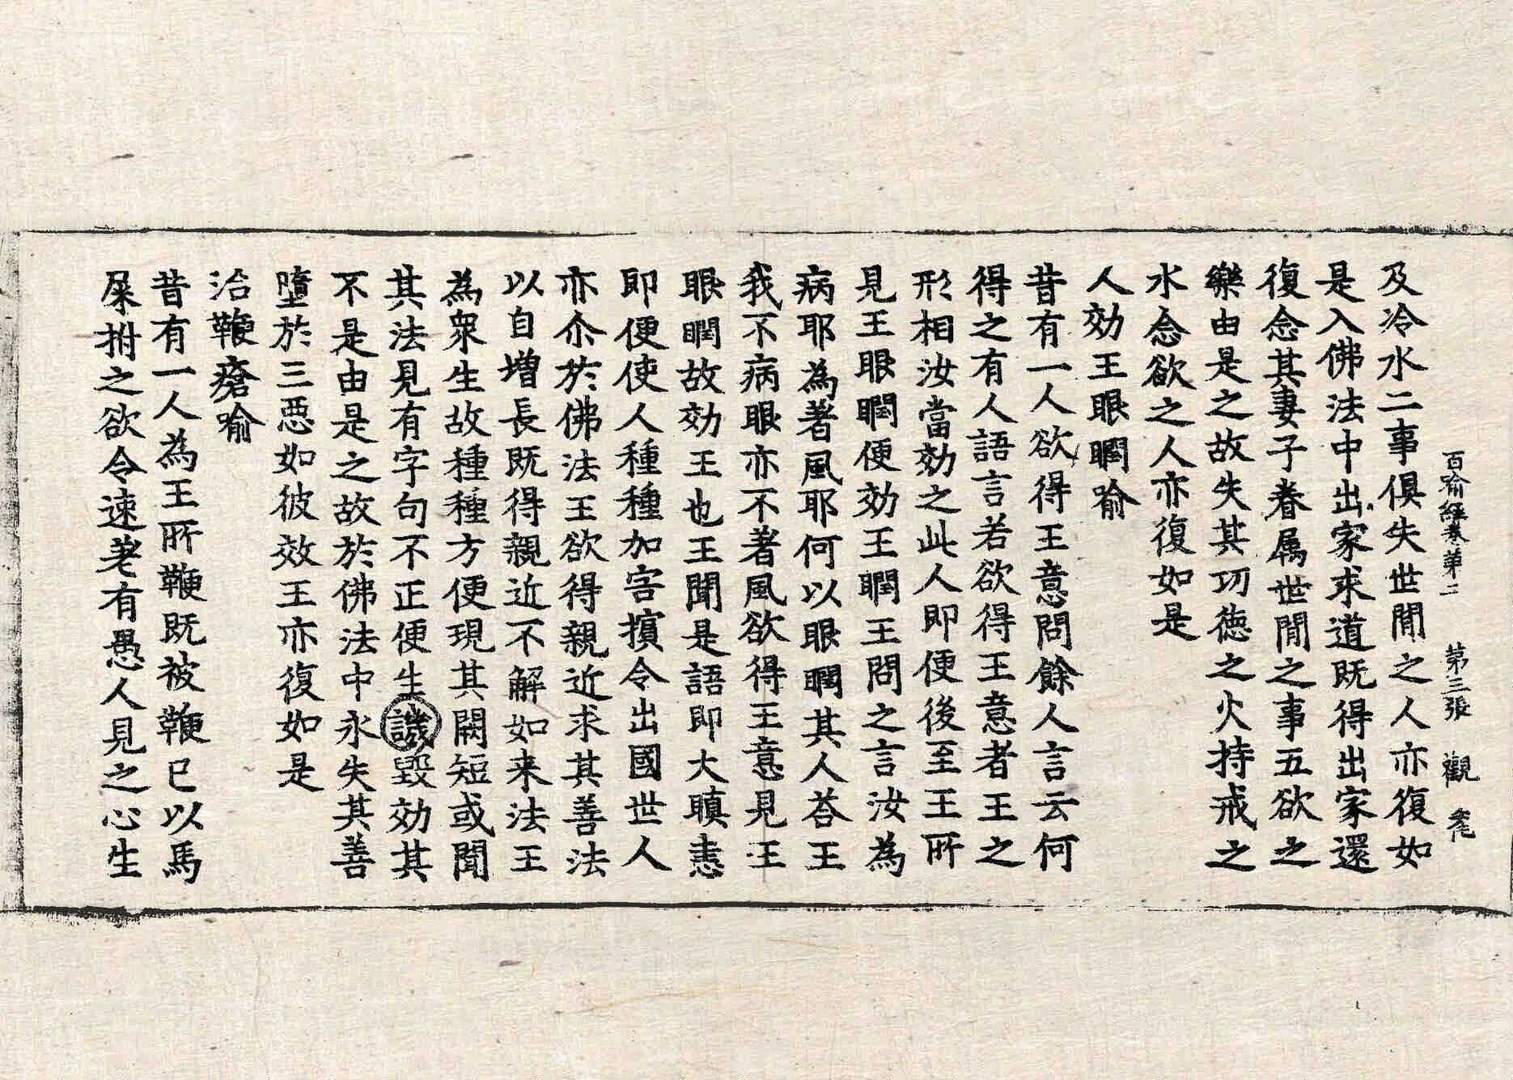 百喻經卷第二　第三張　觀
及冷水二事俱失世閒之人亦復如
是入佛法中出家求道既得出家還
復念其妻子眷属世閒之事五欲之
樂由是之故失其功德之火持戒之
水念欲之人亦復如是
人効王眼瞤喻
昔有一人欲得王意問餘人言云何
得之有人語言若欲得王意者王之
形相汝當効之此人即便後至王所
見王眼瞤便効王瞤王問之言汝為
病耶為著風耶何以眼瞤其人荅王
我不病眼亦不著風欲得王意見王
眼瞤故効王也王聞是語即大瞋恚
即便使人種種加害擯令出國世人
亦尒於佛法王欲得親近求其善法
以自增長既得親近不解如来法王
為衆生故種種方便現其闕短或聞
其法見有字句不正便生譏毀効其
不是由是之故於佛法中永失其善
墮於三惡如彼效王亦復如是
治鞭瘡喻
昔有一人為王所鞭既被鞭已以馬
屎拊之欲令速差有愚人見之心生